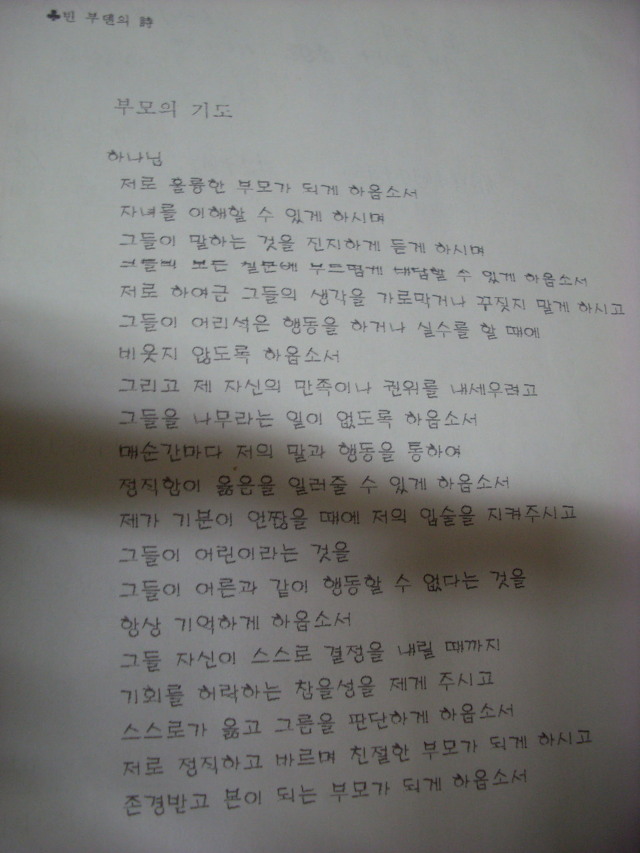 ♣빈 부덴의 詩
부모의 기도
하나님
저로 훌륭한 부모가 되게 하옵소서
자녀를 이해할 수 있게 하시며
그들이 말하는 것을 진지하게 듣게 하시며
그들의 모든 질문에 부드럽게 대답할 수 있게 하옵소서
저로 하여금 그들의 생각을 가로막거나 꾸짖지 말게 하시고
그들이 어리석은 행동을 하거나 실수를 할 때에
비웃지 않도록 하옵소서
그리고 제 자신의 만족이나 권위를 내세우려고
그들을 나무라는 일이 없도록 하옵소서
매순간마다 저의 말과 행동을 통하여
정직함이 옳은을 일러줄 수 있게 하옵소서
제가 기분이 언짢을 때에 저의 입술을 지켜주시고
그들이 어린이라는 것을
그들이 어른과 같이 행동할 수 없다는 것을
항상 기억하게 하옵소서
그들 자신이 스스로 결정을 내릴 때까지
기회를 허락하는 참을성을 제게 주시고
스스로가 옳고 그름을 판단하게 하옵소서
저로 정직하고 바르며 친절한 부모가 되게 하시고
존경받고 본이 되는 부모가 되게 하옵소서